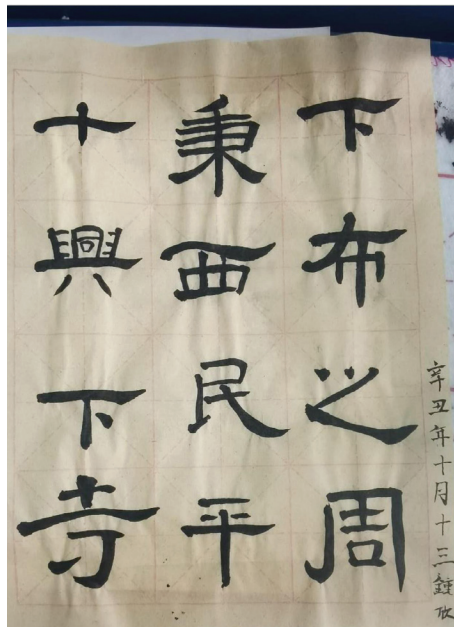 下布之周
秉西民平
十興下寺
辛丑年十月十三鍾